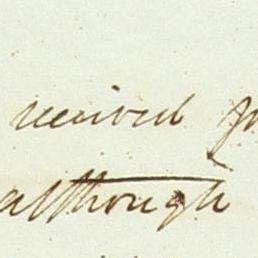 received
although